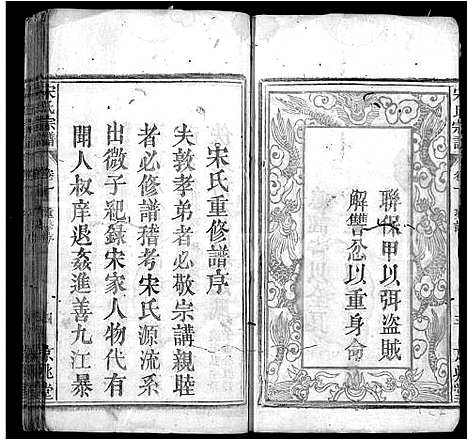 聯保甲以弭盜賊
解讐忿以重身命
宋氏宗譜
卷一
宋氏重修譜序
夫敦孝弟者必敬宗講親睦
者必修譜稽考宋氏源流系
出微子紀録宋家人物代有
聞人叔庠退姦進善九江暴
宋氏宗譜
卷一
京兆堂